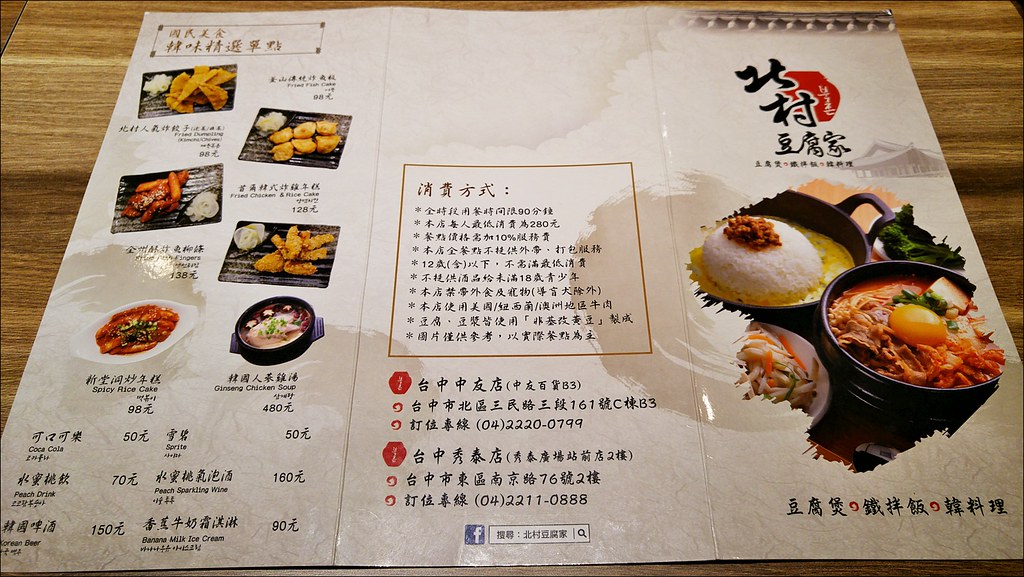 國民美食
韓味精選單點
釜山傳統炸魚板
Fried Fish Cake
98元
北村人氣炸餃子(泡菜/韭菜)
Fried Dumpling
(Kimchi/Chives)
98元
首爾韓式炸雞年糕
Fried Chicken & Rice Cake
128元
全州酥炸魚柳條
Fish Fingers
138元
新堂洞炒年糕
Spicy Rice Cake
떡볶이
98元
韓國人蔘雞湯
Ginseng Chicken Soup
삼계탕
480元
可口可樂 50元
Coca Cola
코카콜라
雪碧 50元
Sprite
사이다
水蜜桃飲 70元
Peach Drink
水蜜桃氣泡酒 160元
Peach Sparkling Wine
韓國啤酒 150元
Korean Beer
香蕉牛奶霜淇淋 90元
Banana Milk Ice Cream
바나나우유 아이스크림
消費方式：
＊全時段用餐時間限90分鐘
＊本店每人最低消費為280元
＊餐點價格需加10%服務費
＊本店全餐點不提供外帶、打包服務
＊12歲(含)以下，不需滿最低消費
＊不提供酒品給未滿18歲青少年
＊本店禁帶外食及寵物(導盲犬除外)
＊本店使用美國/紐西蘭/澳洲地區牛肉
＊豆腐、豆漿皆使用「非基改黃豆」製成
＊圖片僅供參考，以實際餐點為主
북촌
台中中友店(中友百貨B3)
台中市北區三民路三段161號C棟B3
訂位專線 (04)2220-0799
북촌
台中秀泰店(秀泰廣場站前店2樓)
台中市東區南京路76號2樓
訂位專線 (04)2211-0888
f 搜尋：北村豆腐家
北村
북촌
豆腐家
豆腐煲 鐵拌飯 韓料理
豆腐煲 鐵拌飯 韓料理